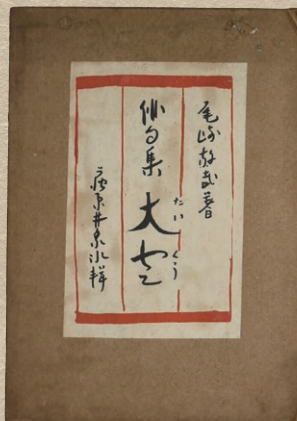 尾崎放哉著
俳句集 大空
たいくう
荻原井泉水輯